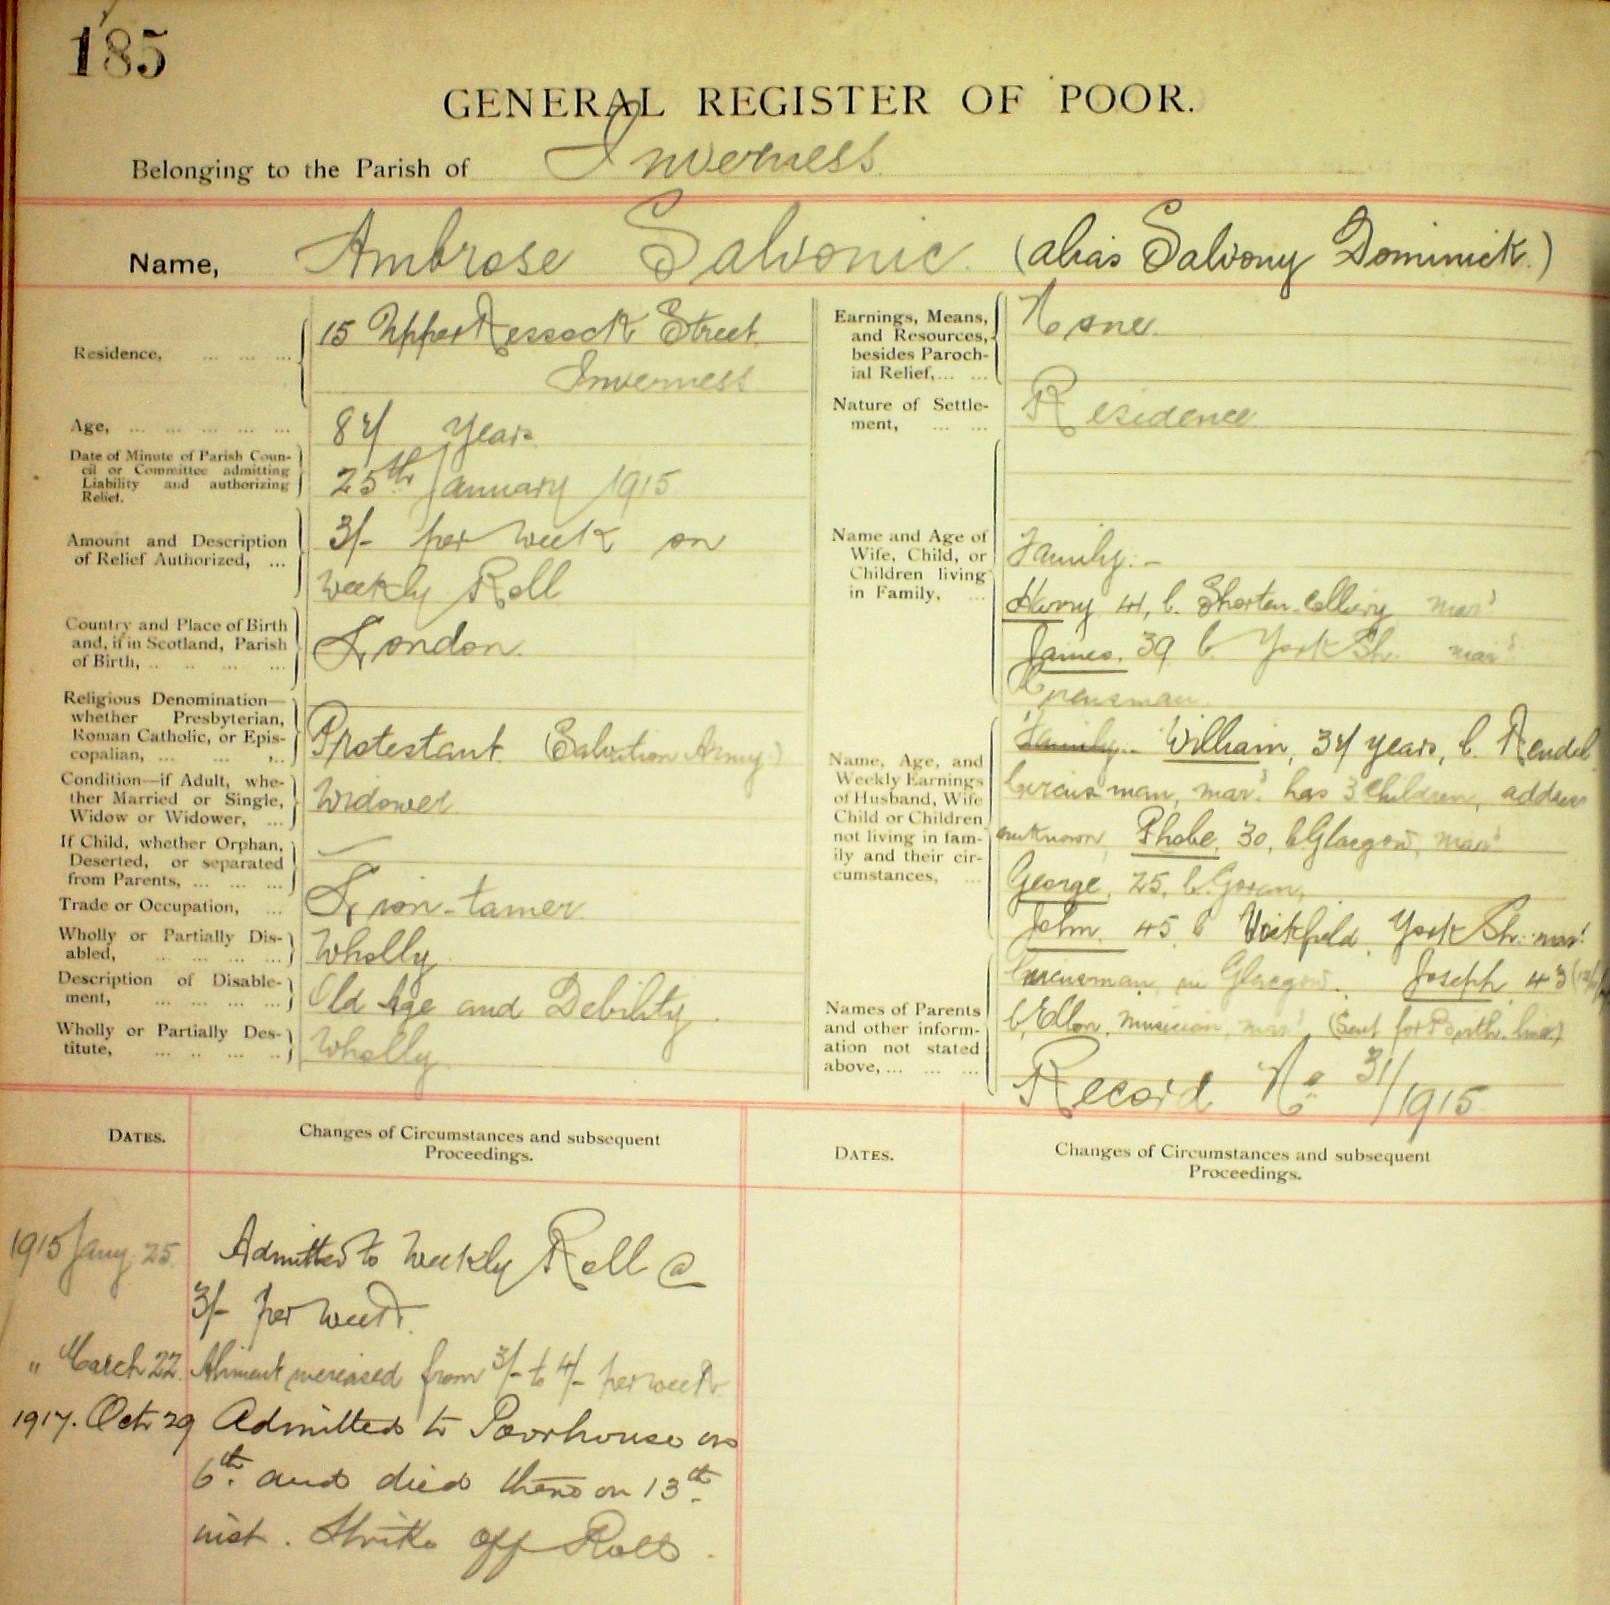 185
GENERAL REGISTER OF POOR.
Belonging to the Parish of Inverness
Name, Ambrose Salvonic (alias Salvony Dominick.)
Residence, ... ... ... 15 Upper Kessock Street
Inverness
Age, ... ... ... ... ... 84 years
Date of Minute of Parish Coun-
cil or Committee admitting
Liability and authorizing
Relief.
25th January 1915
Amount and Description
of Relief Authorized, ...
3/- per week on
Weekly Roll
Country and Place of Birth
and, if in Scotland, Parish
of Birth, ... ... ...
London.
Religious Denomination—
whether Presbyterian,
Roman Catholic, or Epis-
copalian, ... ... ...
Protestant (Salvation Army)
Condition—if Adult, whe-
ther Married or Single,
Widow or Widower, ...
Widower
If Child, whether Orphan,
Deserted, or separated
from Parents, ... ... ...
—
Trade or Occupation, ... Lion-tamer
Wholly or Partially Dis-
abled, ... ... ... ...
Wholly
Description of Disable-
ment, ... ... ... ...
Old Age and Debility.
Wholly or Partially Des-
titute, ... ... ... ...
Wholly
Earnings, Means,
and Resources,
besides Paroch-
ial Relief, ... ...
None.
Nature of Settle-
ment, ... ...
Residence
Name and Age of
Wife, Child, or
Children living
in Family, ...
Family:-
Harry 41, b. Colliery mard
James. 39 b. York Sh. mard
Circusman
Name, Age, and
Weekly Earnings
of Husband, Wife
Child or Children
not living in fam-
ily and their cir-
cumstances, ...
Family.- William, 34 years, b. Kendal
Circus man, mard has 3 children, address
unknown, Phobe, 30, b Glasgow, mard
George, 25, b. Govan,
John, 45, b York Sh. mard
Circusman in Glasgow. Joseph 43
Names of Parents
and other inform-
ation not stated
above, ... ... ...
b, Ellon, musician, mard (Sent for
Record No 31/1915
DATES. Changes of Circumstances and subsequent
Proceedings.
DATES. Changes of Circumstances and subsequent
Proceedings.
1915 Jany. 25. Admitted to Weekly Roll @
3/- per week.
" March 22. Aliment increased from 3/- to 4/- per week
1917. Oct 29 Admitted to Poorhouse on
6th. and died there on 13th
inst. Strike off Roll.